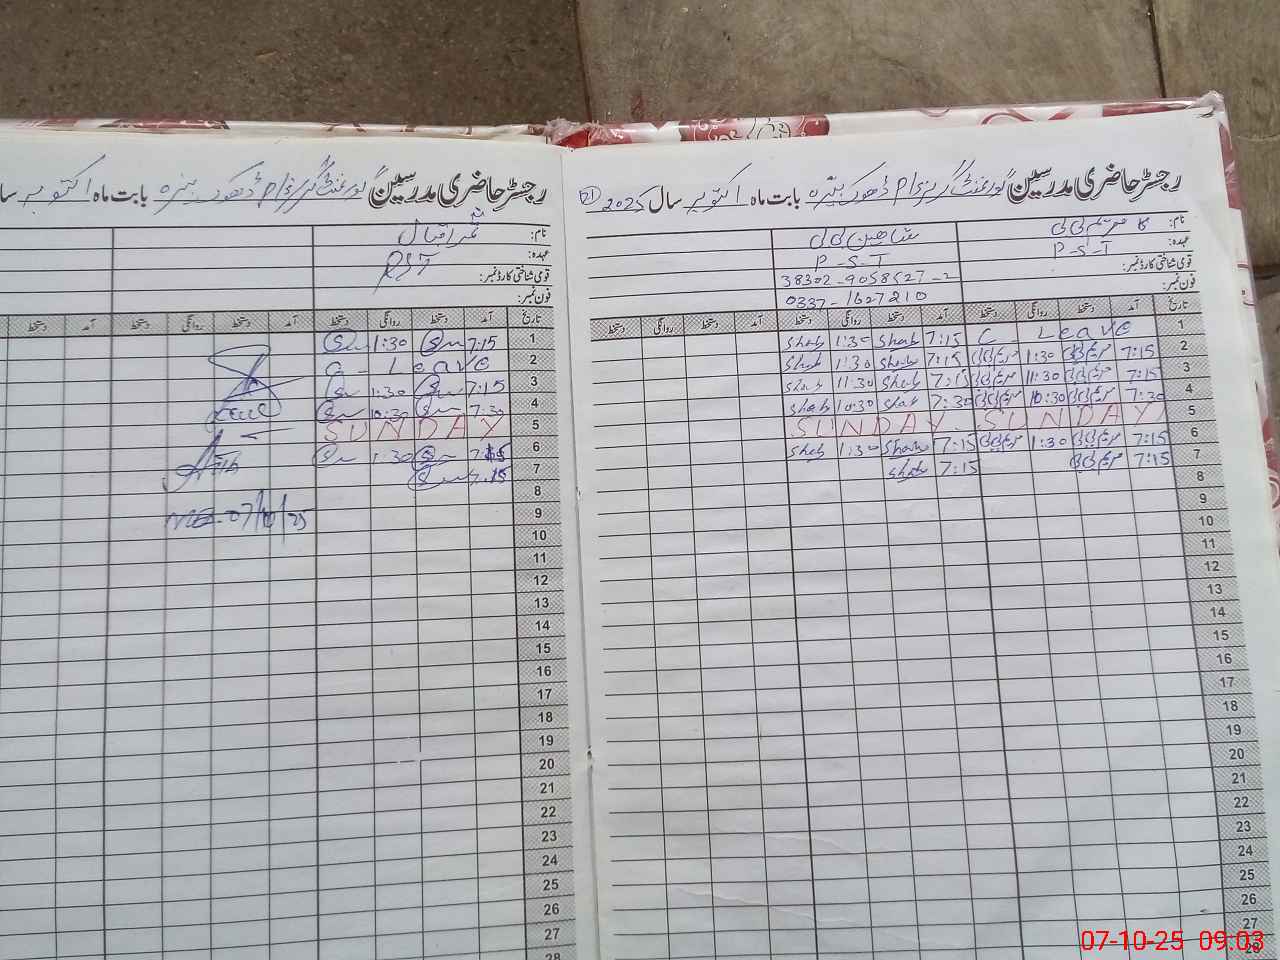 رجسٹر حاضری مدرسین گورنمنٹ گرلز P/S ڈھوک بابت ماہ اکتوبر سال 2025
نام: مریم بی بی
شاہین بی بی
عہدہ: P-S-T
P-S-T
قومی شناختی کارڈ نمبر:
38302-9058527-2
فون نمبر:
0337-1627210
تاریخ آمد دستخط روانگی دستخط آمد دستخط روانگی دستخط آمد دستخط روانگی دستخط
1 C - Leave 7:15 Shah 1:30 Shah
2 7:15 مریم بی بی 1:30 مریم بی بی 7:15 Shah 1:30 Shah
3 7:15 مریم بی بی 11:30 مریم بی بی 7:15 Shah 11:30 Shah
4 7:30 مریم بی بی 10:30 مریم بی بی 7:30 Shah 10:30 Shah
5 SUNDAY SUNDAY
6 7:15 مریم بی بی 1:30 مریم بی بی 7:15 Shah 1:30 Shah
7 7:15 مریم بی بی 7:15 Shah
8
9
10
11
12
13
14
15
16
17
18
19
20
21
22
23
24
25
26
27
28
رجسٹر حاضری مدرسین گورنمنٹ گرلز P/S ڈھوک بابت ماہ اکتوبر سا
نام: اقبال
عہدہ: PST
قومی شناختی کارڈ نمبر:
فون نمبر:
تاریخ آمد دستخط روانگی دستخط آمد دستخط روانگی دستخط آمد دستخط
1 7:15 1:30
2 C - Leave
3 7:15 1:30
4 7:30 10:30
5 SUNDAY
6 7:15 1:30
7 7:15
8
9 07/10/25
10
11
12
13
14
15
16
17
18
19
20
21
22
23
24
25
26
27
28
07-10-25 09:03